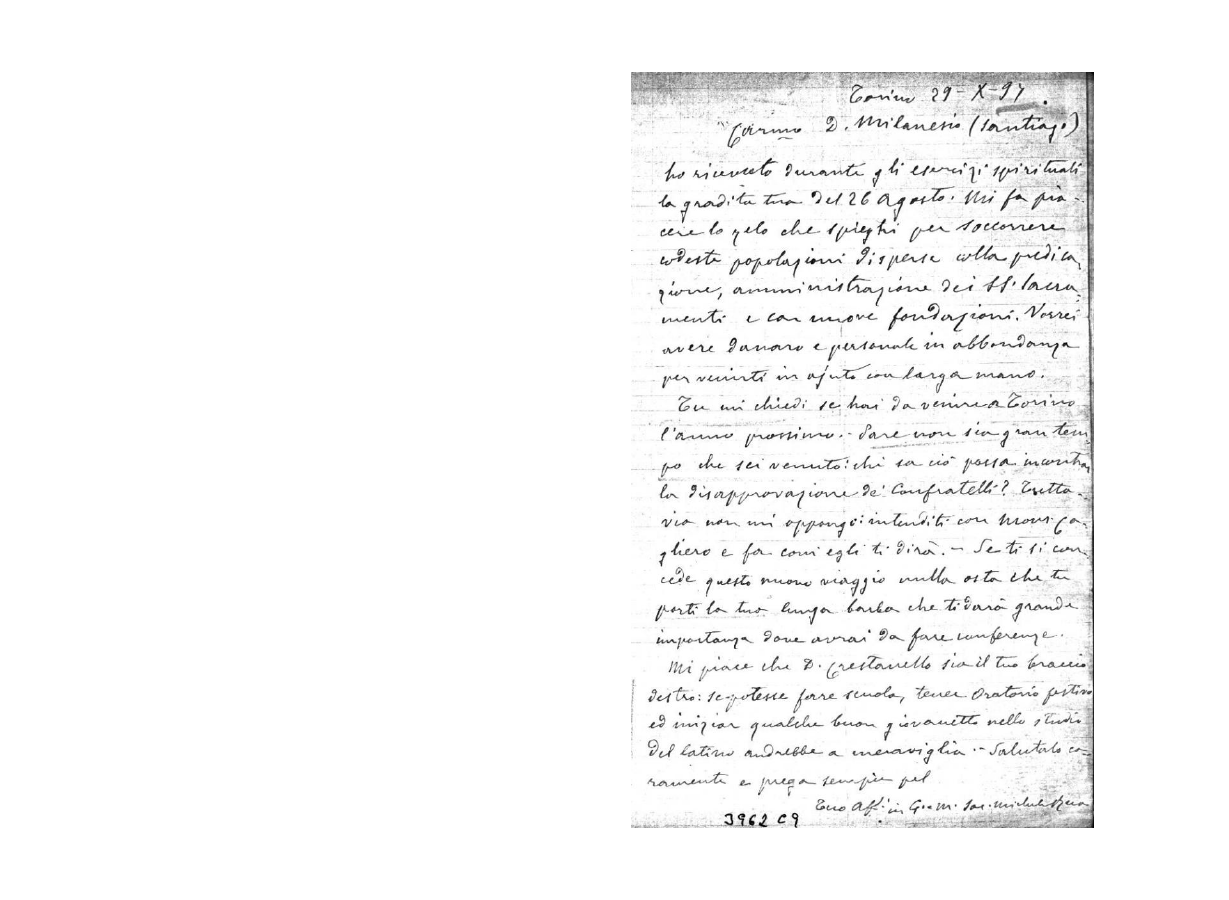 Torino 29-X-97.
Car.mo D. Milanesio (Santiago)
ho ricevuto durante gli esercizi spirituali
la gradita tua del 26 Agosto. Mi fa pia-
cere lo zelo che spieghi per soccorrere
codeste popolazioni disperse colla predica
zione, amministrazione dei SS. Sacra-
menti e con nuove fondazioni. Vorrei
avere danaro e personale in abbondanza
per venirti in ajuto con larga mano.
Tu mi chiedi se hai da venire a Torino
l'anno prossimo. - Pare non sia gran tem
po che sei venuto: chi sa ciò possa incontrar
la disapprovazione de' Confratelli? Tutta-
via non mi oppongo: intenditi con Mons. Ca-
gliero e fa com' egli ti dirà. - Se ti si con-
cede questo nuovo viaggio nulla osta che tu
porti la tua lunga barba che ti darà grande
importanza dove avrai da fare conferenze.
Mi piace che D. Crestanello sia il tuo braccio
destro: se potesse fare scuola, tener Oratorio festivo
ed iniziar qualche buon giovanetto nello studio
del latino andrebbe a meraviglia. - Salutalo ca-
ramente e prega sempre pel
Tuo Aff. in G. e M. Sac. Michele Rua
3962 C9